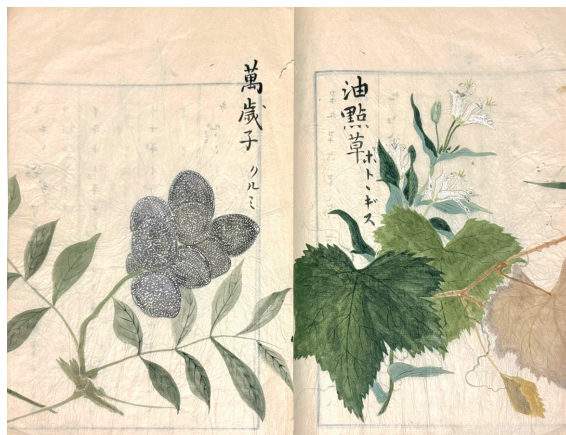 油點草
ホトヽギス
萬歲子
クルミ